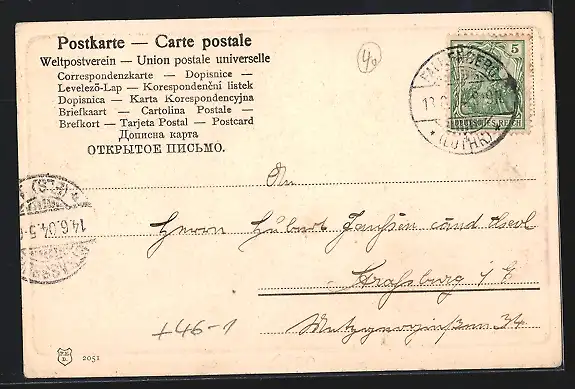 Postkarte — Carte postale
Weltpostverein — Union postale universelle
Correspondenzkarte — Dopisnice —
Levelező-Lap — Korespondenční listek
Dopisnica — Karta Korespondencyjna
Briefkaart — Cartolina Postale —
Brefkort — Tarjeta Postal — Postcard
Дописна карта
ОТКРЫТОЕ ПИСЬМО.
5
DEUTSCHES REICH
(LOTHR)
14.6.04.5
An
Herrn Hubert Janssen cand
Strassburg i/E
34
+46-1
2051